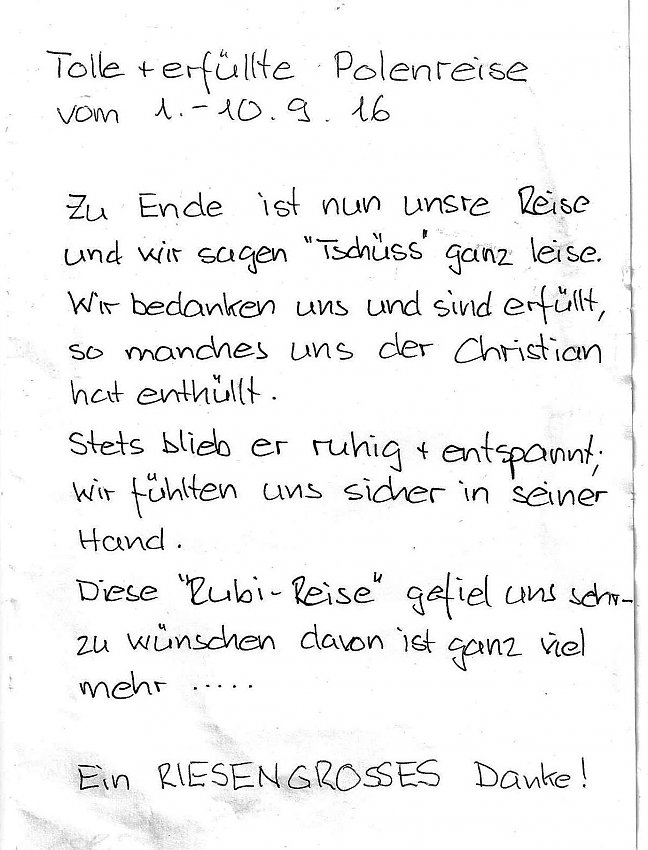 Tolle + erfüllte Polenreise
vom 1.-10.9.16
Zu Ende ist nun unsre Reise
und wir sagen "Tschüss" ganz leise.
Wir bedanken uns und sind erfüllt,
so manches uns der Christian
hat enthüllt.
Stets blieb er ruhig + entspannt;
wir fühlten uns sicher in seiner
Hand.
Diese "Rubi-Reise" gefiel uns sehr-
zu wünschen davon ist ganz viel
mehr .....
Ein RIESENGROSSES Danke!